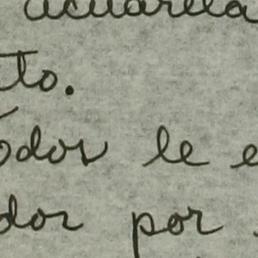 acuarela
to.
odos le e
dor por